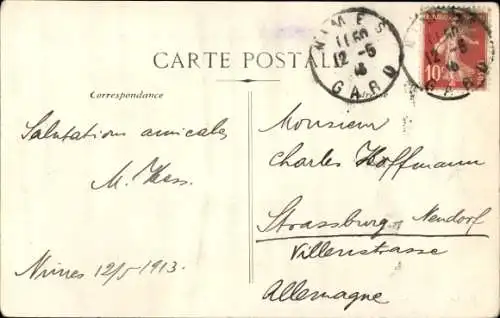 CARTE POSTALE
NIMES
11 50
12-5
13
GARD
NIMES
11 50
12-5
13
GARD
10
Correspondance
Salutations amicales
M. Hess.
Nimes 12/5 1913.
Monsieur
Charles Hoffmann
Strassburg Neudorf
Villenstrasse
Allemagne